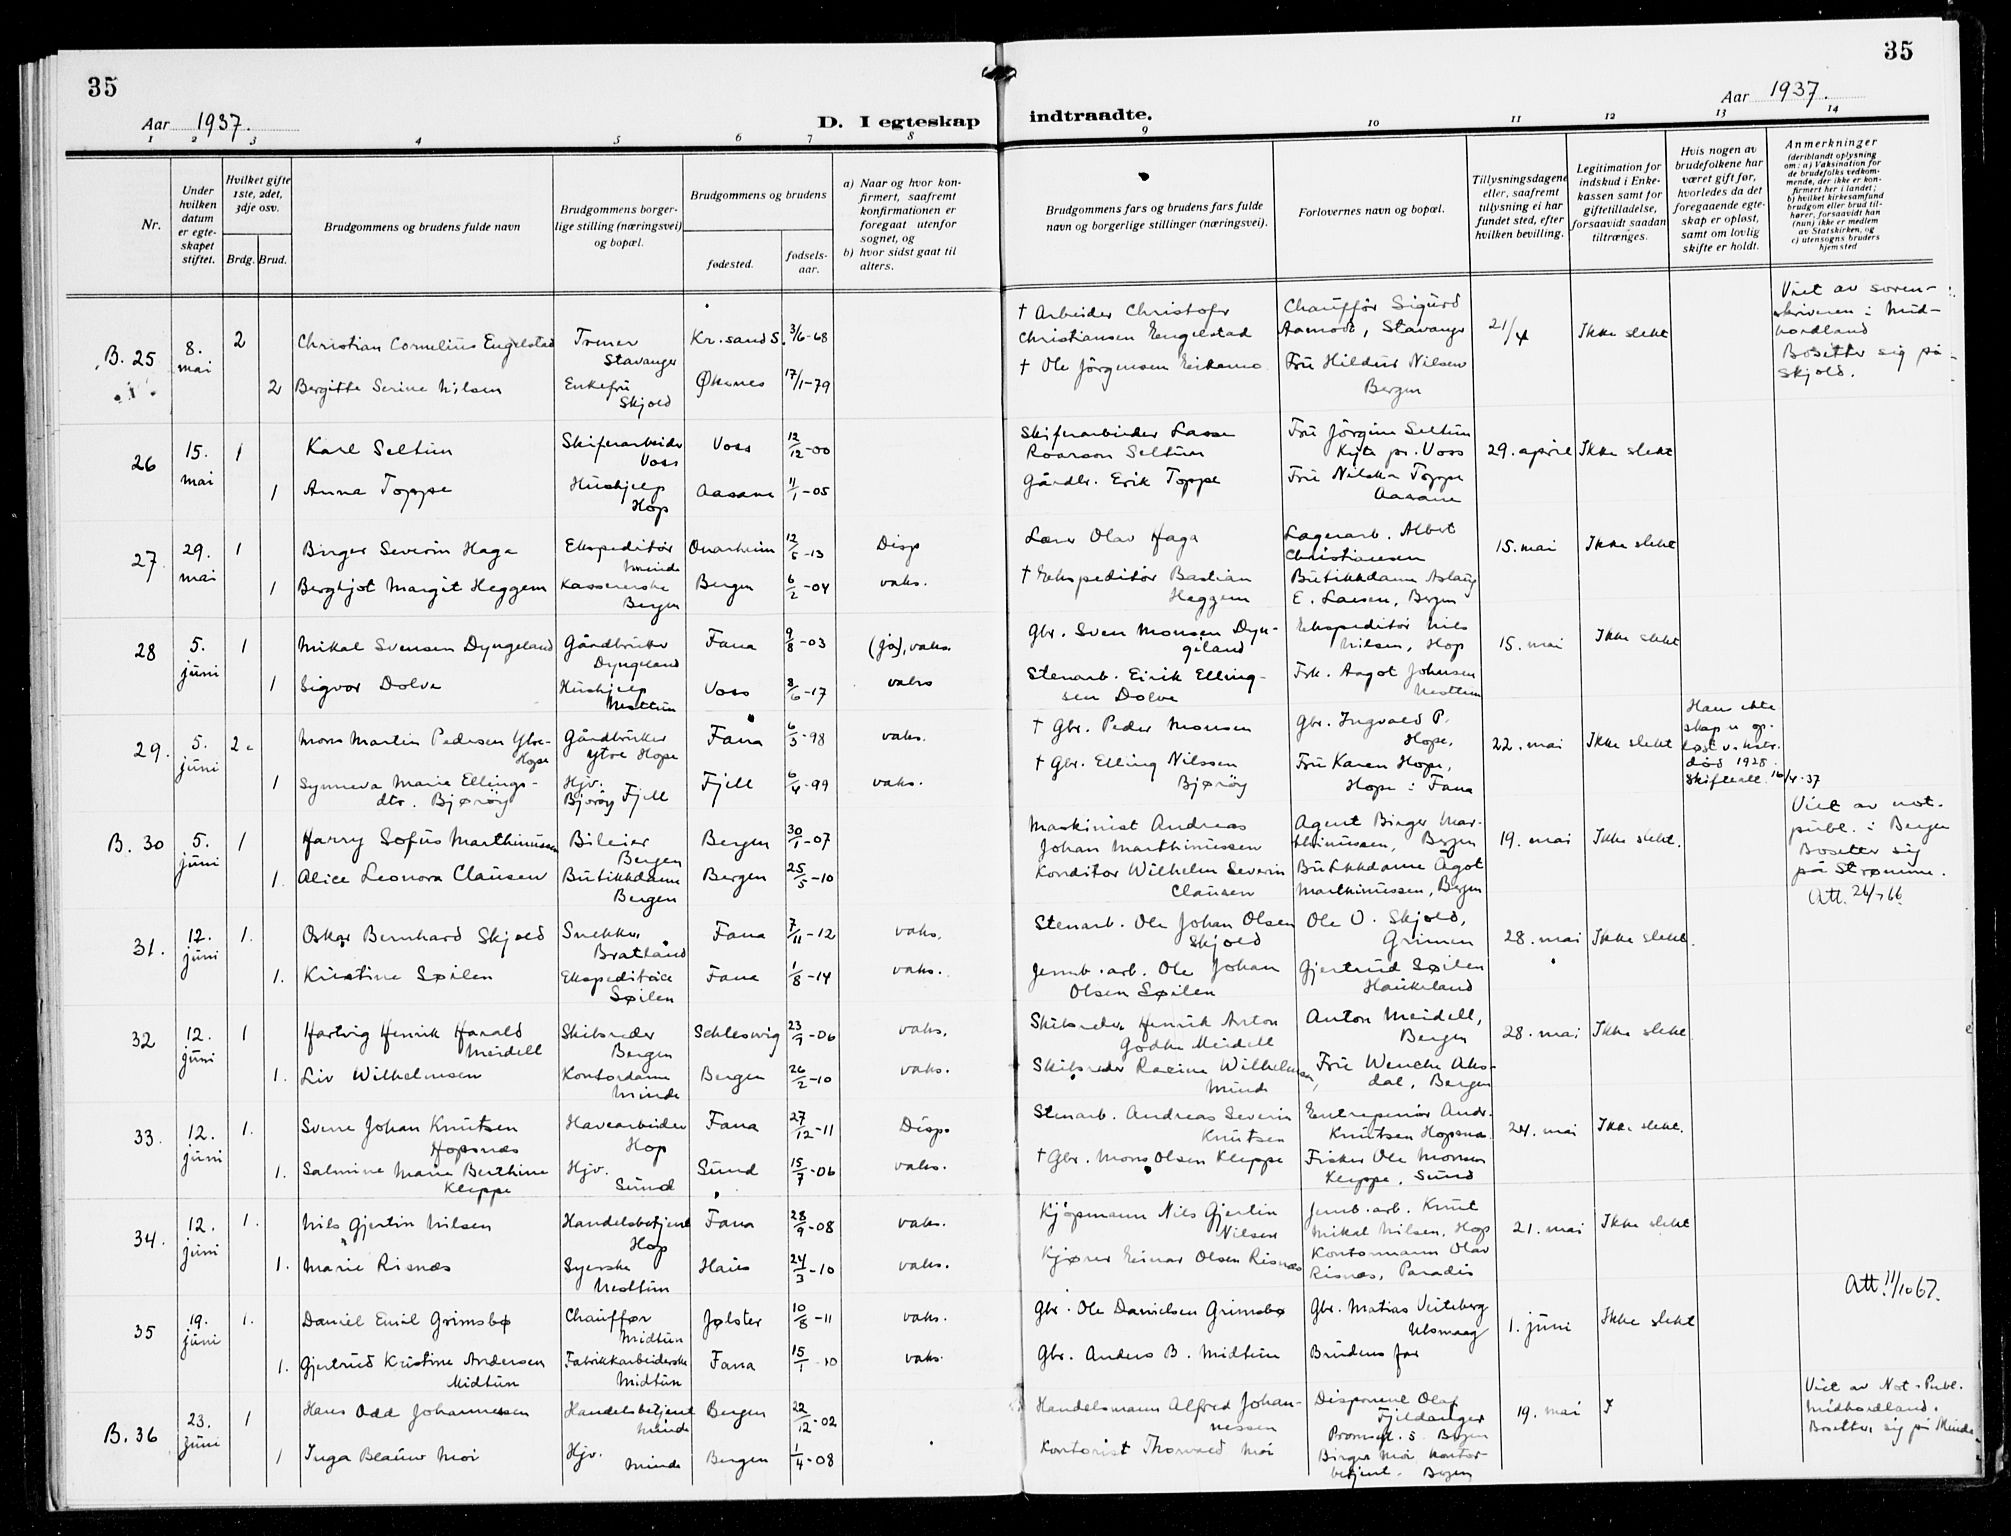 35
35
Aar 1937.
D. I egteskap
indtraadte.
Aar 1937.
1 2 3 4 5 6 7 8 9 10 11 12 13 14
Nr.
Under hvilken datum er egteskapet stiftet.
Hvilket gifte 1ste, 2det, 3dje osv.
Brdg. Brud.
Brudgommens og brudens fulde navn
Brudgommens borgerlige stilling (næringsvei) og bopæl.
Brudgommens og brudens
fødested.
fødselsaar.
a) Naar og hvor konfirmert, saafremt konfirmationen er foregaat utenfor sognet, og
b) hvor sidst gaat til alters.
Brudgommens fars og brudens fars fulde navn og borgerlige stillinger (næringsvei).
Forlovernes navn og bopæl.
Tillysningsdagene eller, saafremt tillysning ei har fundet sted, efter hvilken bevilling.
Legitimation for indskud i Enkekassen samt for giftetilladelse, forsaavidt saadan tiltrænges.
Hvis nogen av brudefolkene har været gift før, hvorledes da det foregaaende egteskap er opløst, samt om lovlig skifte er holdt.
Anmerkninger
(deriblandt oplysning om: a) Vaksination for de brudefolks vedkommende, der ikke er konfirmert her i landet; b) hvilket kirkesamfund brudgom eller brud tilhører, forsaavidt han (hun) ikke er medlem av Statskirken, og c) utensogns bruders hjemsted
B. 25 8. mai 2 Christian Cornelius Engelstad Stavanger Kr.sand S. 3/6-68 † Arbeider Christofer Christiansen Engelstad Chauffør Sigurd Aamodt, Stavanger 21/4 Ikke slekt Viet av sorenskriveren i Midhordland
2 Bergitte Serine Nilsen Enkefru Skjold Øksnes 17/1-79 † Ole Jörgensen Fru Hildur Nilsen Bergen Bosetter sig på Skjold.
26 15. mai 1 Karl Seltun Skiferarbeider Voss Voss 12/12-00 Skiferarbeider Lasse Roarson Seltun Fru Jörgine Seltun Kyte pr. Voss 29. april Ikke slekt
1 Anna Toppe Hushjelp Hop Aasane 11/1-05 Gårdbr. Erik Toppe Fru Toppe Aasane
27 29. mai 1 Birger Severin Haga Ekspeditör Minde Kvarheim 12/6-13 Disp Lærer Olav Haga Lagerarb. Albert Christiansen 15. mai Ikke slekt
1 Bergljot Margit Heggem Kassererske Bergen Bergen 6/2-04 vaks. † Ekspeditör Bastian Heggem Butikkdame Aslaug E. Larsen, Bergen
28 5. juni 1 Mikal Svensen Dyngeland Gårdbruker Dyngeland Fana 9/8-03 (ja), vaks. Gbr. Sven Monsen Dyngeland Ekspeditör Nils Nilsen, Hop 15. mai Ikke slekt
1 Sigvor Dolve Hushjelp Nesttun Voss 8/6-17 vaks Stenarb. Eirik Ellingsen Dolve Frk. Aagot Johnsen Nesttun
29. 5. juni 2 Mons Martin Pedersen Ytre-Hope Gårdbruker Ytre Hope Fana 6/3-98 vaks. † Gbr. Peder Monsen Gbr. Ingvald P. Hope, 22. mai Ikke slekt Hans ekteskap er opløst v. kones død 1928. Skifteatt. 16/4-37
1 Synneva Marie Ellingsdtr. Bjørøy Hjv. Bjorøy Fjell Fjell 6/4-99 vaks. † Gbr. Elling Nilssen Bjørøy Fru Karen Hope, Hope i Fana
B. 30 5. juni 1 Harry Sofus Marthinussen Bileier Bergen Bergen 30/1-07 Maskinist Andreas Johan Marthinussen Agent Birger Marthinussen, Bergen 19. mai Ikke slekt. Viet av not. publ. i Bergen
1. Alice Leonora Clausen Butikkdame Bergen Bergen 25/5-10 Konditor Wilhelm Severin Clausen Butikkdame Agot Marthinussen, Bergen Bosetter sig på Strømme. Att. 26/7 66.
31. 12. juni 1. Oskar Bernhard Skjold Snekker Bratland Fana 7/11-12 vaks. Stenarb. Ole Johan Olsen Skjold Ole O. Skjold, Grimen 28. mai Ikke slekt.
1. Kristine Søilen Ekspeditrice Søilen Fana 1/8-14 vaks. Jernb.arb. Ole Johan Olsen Søilen Gjertrud Søilen Haukeland
32 12. juni 1 Hartvig Henrik Harald Meidell Skibsreder Bergen Schleswig 23/7-06 vaks. Skibsreder Henrik Anton Godtke Meidell Anton Meidell, Bergen 28. mai Ikke slekt
1. Liv Wilhelmsen Kontordame Minde Bergen 26/2-10 vaks. Skibsreder Racine Wilhelmsen, Minde Fru Wenche Aksdal, Bergen
33. 12. juni 1. Sverre Johan Knutsen Hopsnæs Havearbeider Hop Fana 27/12-11 Disp. Stenarb. Andreas Severin Knutsen Entreprenör Andr. Knutsen Hopsnæs 24. mai Ikke slekt.
1. Salmine Marie Berthine Kleppe Hjv. Sund Sund 15/7-06 vaks. † Gbr. Mons Olsen Kleppe Fisker Ole Monsen Kleppe, Sund
34. 12. juni 1. Nils Gjertin Nilsen Handelsbetjent Hop Fana 28/9-08 vaks. Kjøpmann Nils Gjertin Nilsen Jernb.arb. Knut Mikal Nilsen, Hop 21. mai Ikke slekt
1. Marie Risnæs Syerske Nesttun Haus 24/3-10 vaks. Kjører Einar Olsen Risnæs Kontormann Olav Risnæs, Paradis
Att. 11/10 67.
35 19. juni 1. Daniel Emil Grimsbø Chauffør Midtun Jølster 10/8-11 vaks. Gbr. Ole Danielsen Grimsbø Gbr. Matias Veiteberg Ulsmaag 1. juni Ikke slekt
1. Gjertrud Kristine Andersen Midtun Fabrikkarbeiderske Midtun Fana 15/1-10 vaks. Gbr. Anders B. Midtun Brudens far
B. 36 23. juni 1 Hans Odd Johannessen Handelsbetjent Minde Bergen 22/12-02 Handelsmann Alfred Johannessen Disponent Olaf Fjeldanger Bergen 19. mai Viet av Not. Publ. Midhordland.
1 Inga Blauw Moi Hjv. Minde Bergen 1/4-08 Kontorist Thorvald Moi Birger Moi, kontorbetjent. Bergen Bosetter sig på Minde.